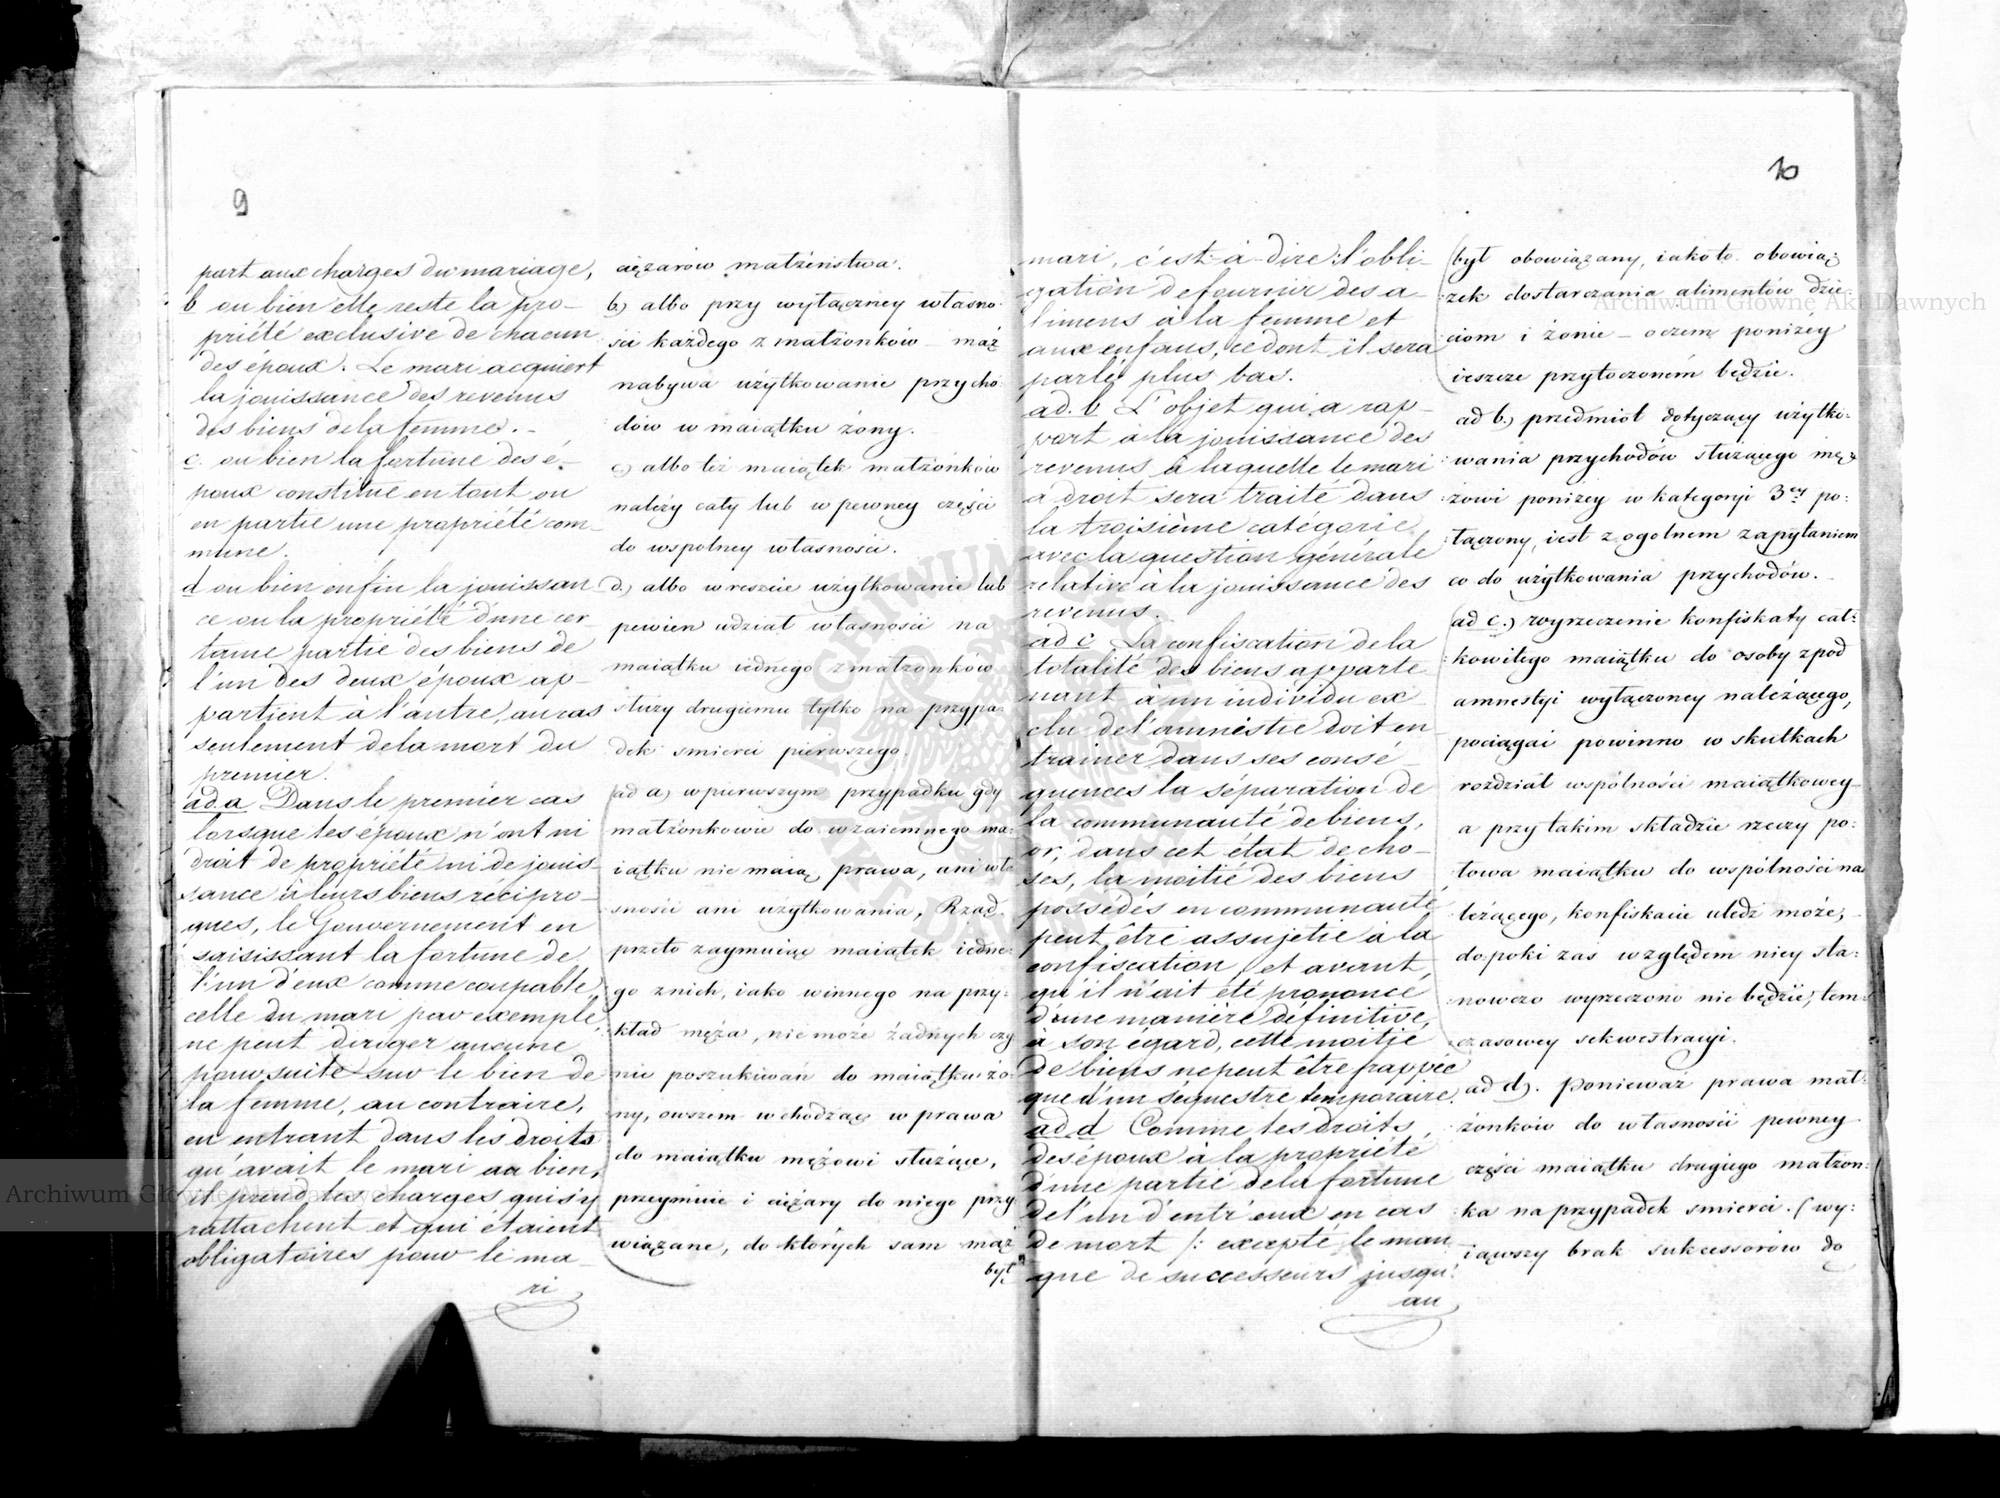 9
part aux charges du mariage,
b ou bien elle reste la pro-
priété exclusive de chacun
des époux. Le mari acquiert
la jouissance des revenus
des biens de la femme. -
c. ou bien la fortune des é-
poux constitue en tout ou
en partie une propriété com-
mune.
d ou bien enfin la jouissan
ce ou la propriété d'une cer-
taine partie des biens de
l'un des deux époux ap-
partient à l'autre, au cas
seulement de la mort du
premier.
ad. a Dans le premier cas
lorsque les époux n'ont ni
droit de propriété ni de jouis-
sance à leurs biens recipro-
ques, le Gouvernement en
saisissant la fortune de
l'un d'eux comme coupable,
celle du mari par exemple,
ne peut diriger aucune
poursuite sur le bien de
la femme, au contraire,
en entrant dans les droits
qu'avait le mari au bien,
il prend les charges qui s'y
rattachent et qui étaient
obligatoires pour le ma-
ri
ciężarów małżeństwa.
b.) albo przy wyłączney własno-
ści każdego z małżonków - mąż
nabywa użytkowanie przycho
dów w maiątku żony.
c.) albo też maiątek małżonków
należy cały lub w pewney części
do wspolney własności.
d.) albo wreszcie użytkowanie lub
pewien udział własności na
maiątku iednego z małżonków
służy drugiemu tylko na przypa-
dek smierci pierwszego.
(ad a) w pierwszym przypadku gdy
małżonkowie do wzaiemnego ma-
iątku nie maią prawa, ani wła
sności ani użytkowania, Rząd
przeto zaymuiąc maiątek iedne-
go z nich, iako winnego na przy-
kład męża, nie może żadnych czy
nić poszukiwań do maiątku żo-
ny, owszem wchodząc w prawa
do maiątku mężowi służące,
przeymuie i ciężary do niego przy
wiązane, do których sam mąż
był
10
mari, c'est-à-dire: l'obli-
gation de fournir des a-
limens à la femme et
aux enfans, ce dont il sera
parlé plus bas.
ad. b L'objet qui a rap-
port à la jouissance des
revenus à laquelle le mari
a droit sera traité dans
la troisième catégorie
avec la question générale
relative à la jouissance des
revenus.
ad c La confiscation de la
totalité des biens apparte
nant à un individu ex
clu de l'amnistie doit en
trainer dans ses consé-
quences la séparation de
la communauté de biens,
or, dans cet état de cho-
ses, la moitié des biens
possédés en communauté
peut être assujetie à la
confiscation, et avant
qu'il n'ait été prononcé
d'une manière définitive,
à son égard, cette moitié
de biens ne peut être frappée
que d'un séquestre temporaire.
ad. d Comme les droits
des époux à la propriété
d'une partie de la fortune
de l'un d'entr'eux en cas
de mort /: excepté le man-
que de successeurs jusqu'
au
(był obowiązany, iako to obowią-
zek dostarczania alimentów dzie-
ciom i żonie - o czem poniżéy
ieszcze przytoczoném będzie.
ad b.) przedmiot dotyczący użytko-
wania przychodów służącego mę-
żowi poniżey w kategoryi 3ey po-
łączony, iest z ogolnem zapytaniem
co do użytkowania przychodów. -
(ad c.) wyrzeczenie konfiskaty cał-
kowitego maiątku do osoby z pod
amnestyi wyłączoney należącego,
pociągać powinno w skutkach
rozdział wspólności maiątkowey
a przy takim składzie rzeczy po-
łowa maiątku do wspólności na
leżącego, konfiskacie uledz może, -
dopoki zaś względem niey sta-
nowczo wyrzeczono nie będzie, tem-
czasowey sekwestracyi.
ad d). Ponieważ prawa mał-
żonków do własności pewney
części maiątku drugiego małżon-
ka na przypadek smierci. (wy-
iąwszy brak sukcessorów do
Archiwum Główne Akt Dawnych